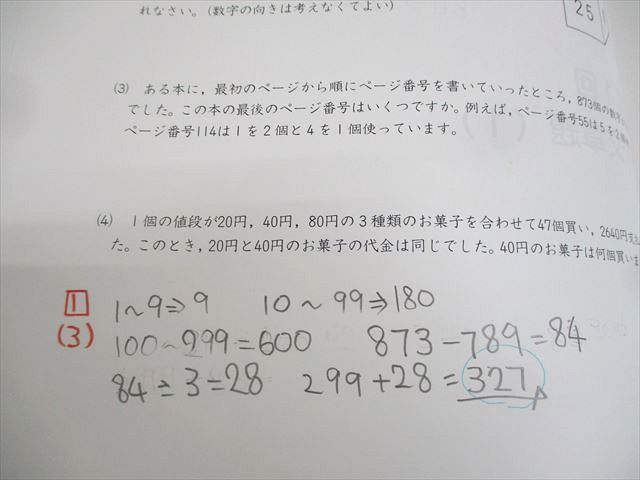 れなさい。(数字の向きは考えなくてよい)
25
(3) ある本に，最初のページから順にページ番号を書いていったところ，873個の数字
でした。この本の最後のページ番号はいくつですか。例えば，ページ番号55は5を2個
ページ番号114は1を2個と4を1個使っています。
(4) 1個の値段が20円，40円，80円の3種類のお菓子を合わせて47個買い，2640円支払
た。このとき，20円と40円のお菓子の代金は同じでした。40円のお菓子は何個買いま
1 1～9⇒9 10～99⇒180
(3) 100～299=600 873-789=84
84÷3=28 299+28=327